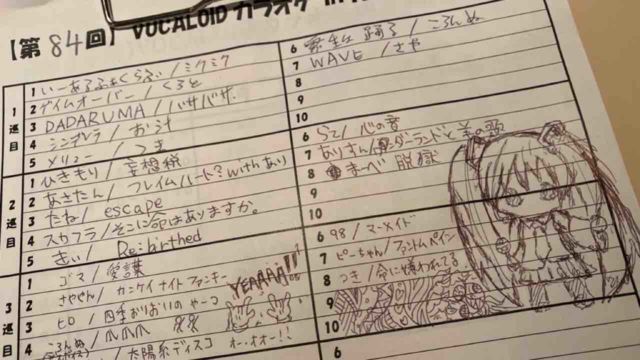 【第84回】VOCALOID カラオケ in
1巡目
1 いーあるふぁんくらぶ / ミクミク
2 ゲイムオーバー / くろと
3 DADARUMA / バサバサ
4 シンデレラ / お汁
5 メリュー / つき
6 踊る / ころんぬ
7 WAVE / さや
8
9
10
2巡目
1 ひきもり / 妄想税
2 あきたん / フレイムハート? withあり
3 たね / escape
4 スカフラ / そこに命はありますか。
5 きい / Re:birthed
6 らて / 心の音
7 ありさん / ダーランドと羊の歌
8 まーべ 脱獄
9
10
3巡目
1 ゴマ / 愛護
2 さやぴん / カンケイナイトファンキー
3 ヒロ / 四季折りおりの
4 ころんぬ / 太陽系ディスコ オーオオー!!
YEAAAA!!
6 98 / マーメイド
7 ピーちゃん / ファントムペイン
8 つき / 命に嫌われてる
9
10
6